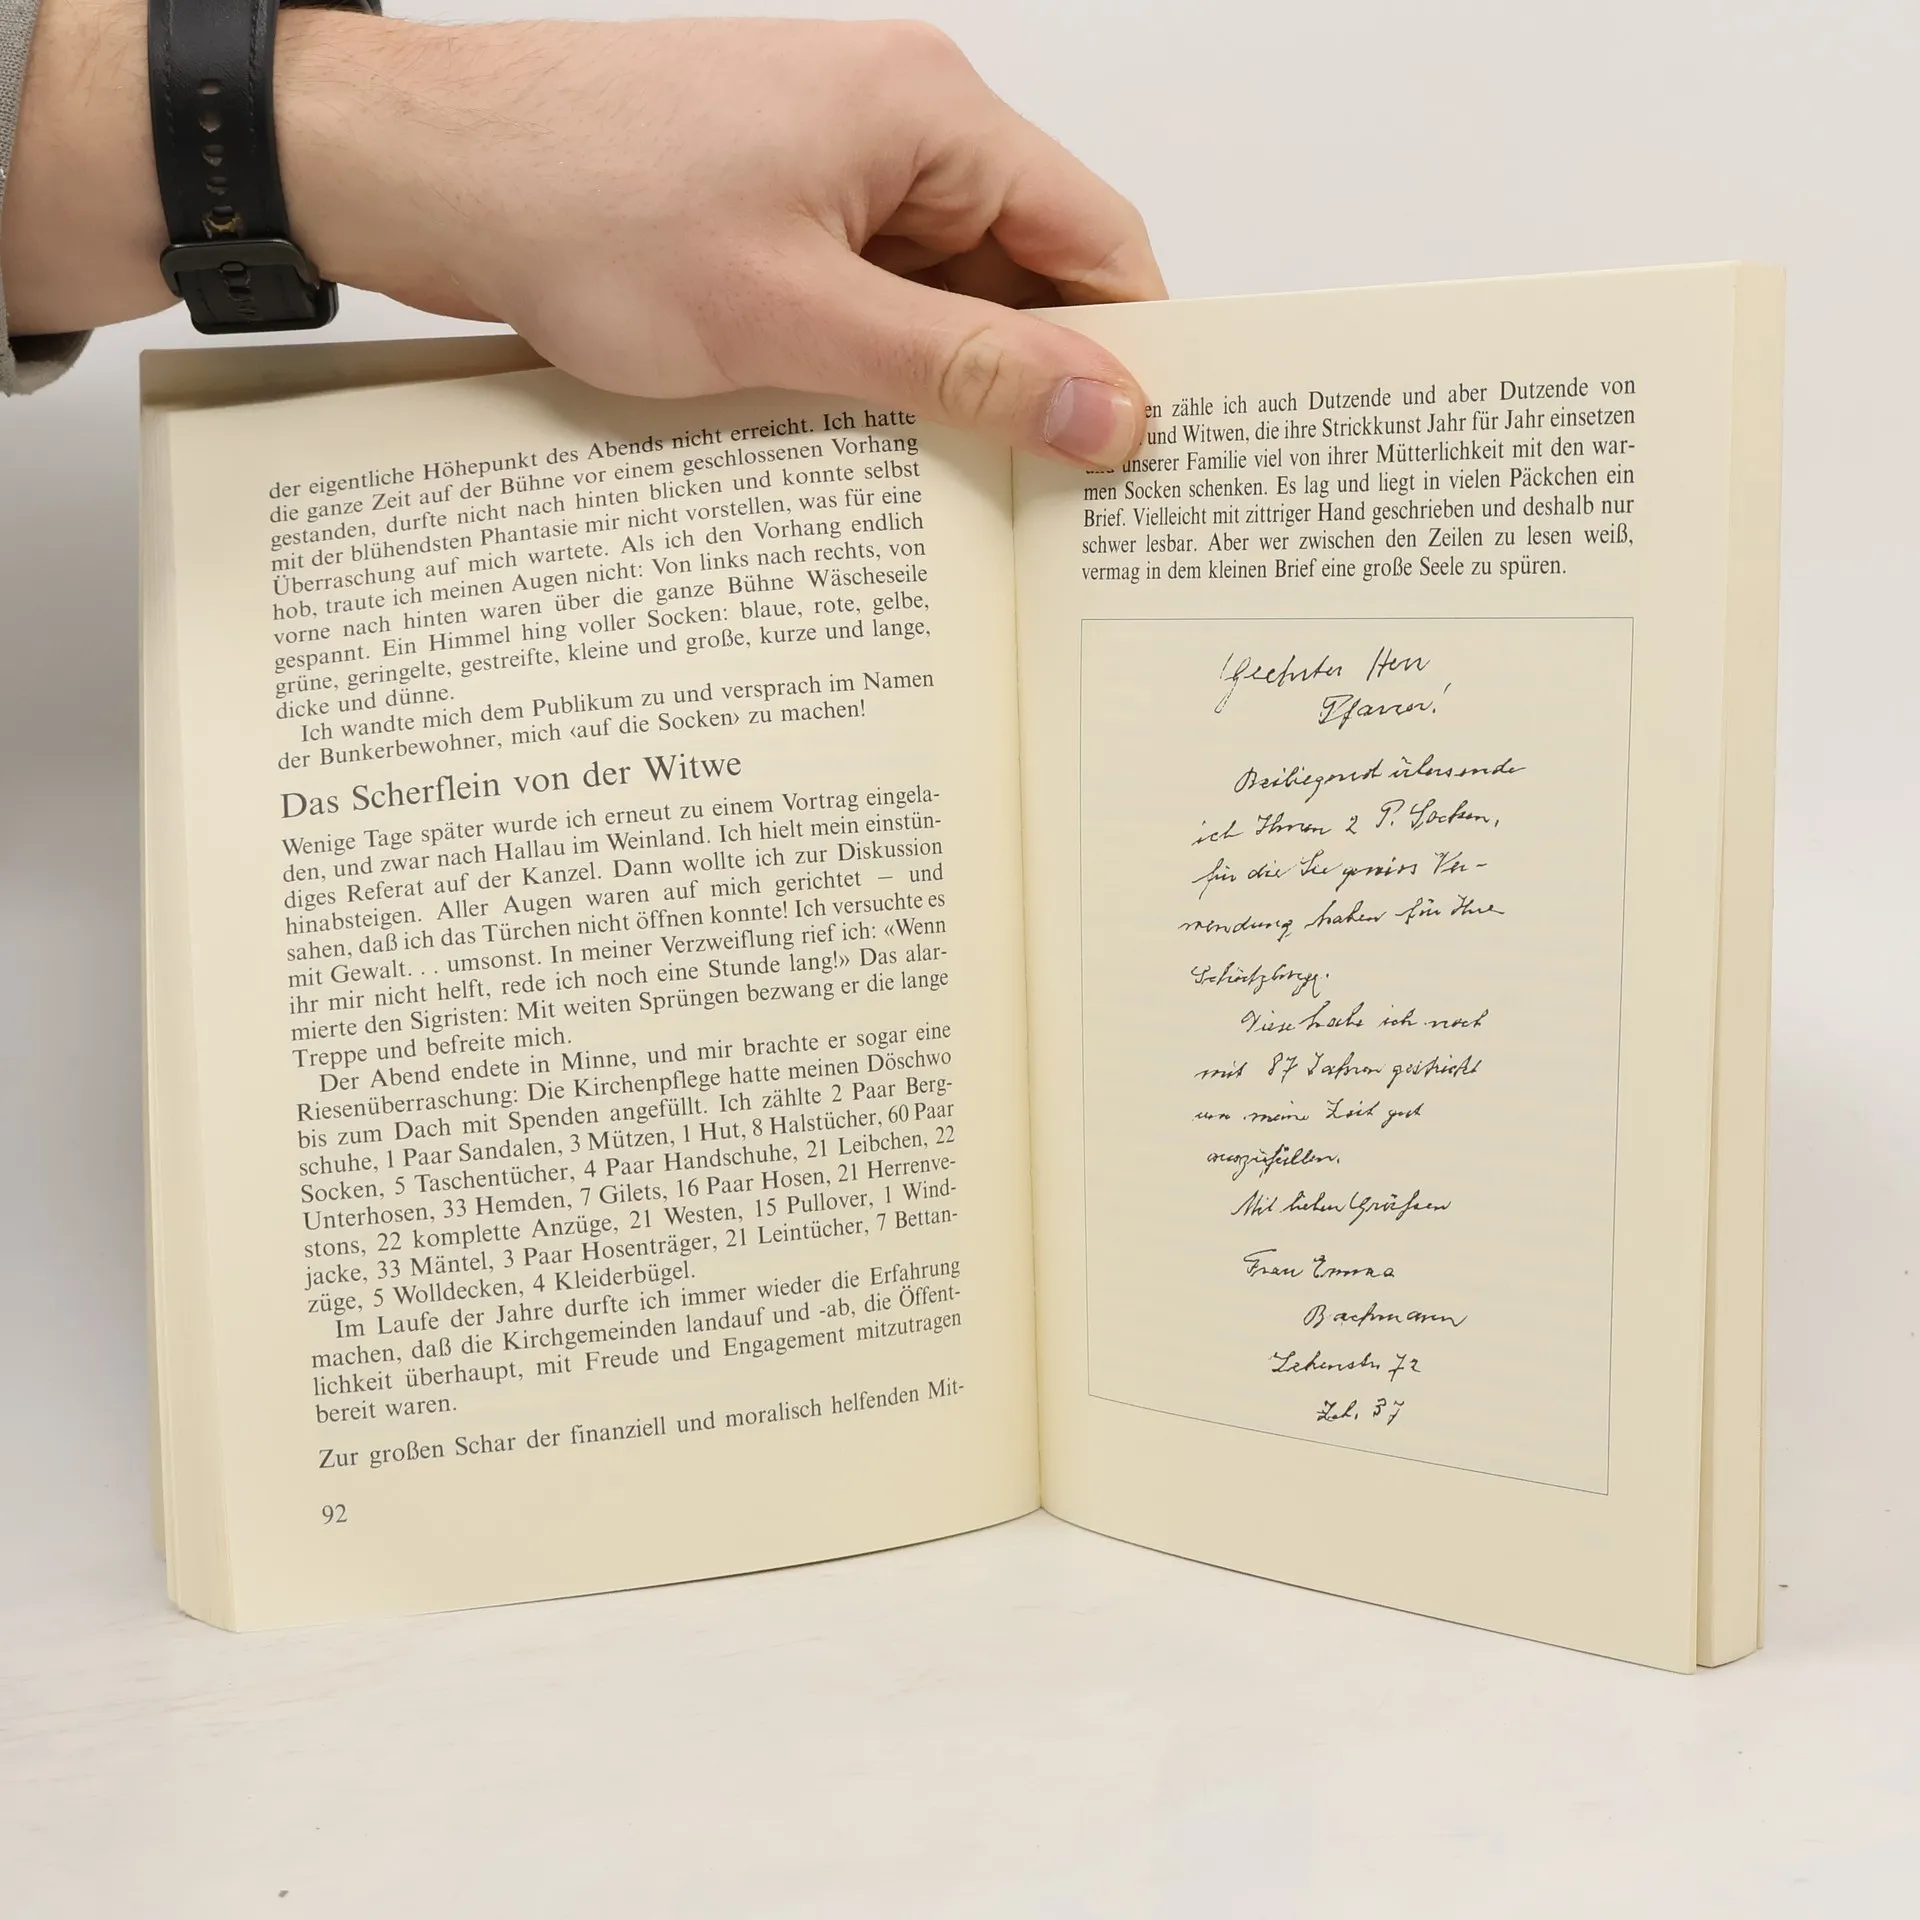 der eigentliche Höhepunkt des Abends nicht erreicht. Ich hatte
die ganze Zeit auf der Bühne vor einem geschlossenen Vorhang
gestanden, durfte nicht nach hinten blicken und konnte selbst
mit der blühendsten Phantasie mir nicht vorstellen, was für eine
Überraschung auf mich wartete. Als ich den Vorhang endlich
hob, traute ich meinen Augen nicht: Von links nach rechts, von
vorne nach hinten waren über die ganze Bühne Wäscheseile
gespannt. Ein Himmel hing voller Socken: blaue, rote, gelbe,
grüne, geringelte, gestreifte, kleine und große, kurze und lange,
dicke und dünne.
Ich wandte mich dem Publikum zu und versprach im Namen
der Bunkerbewohner, mich ‹auf die Socken› zu machen!
Das Scherflein von der Witwe
Wenige Tage später wurde ich erneut zu einem Vortrag eingela-
den, und zwar nach Hallau im Weinland. Ich hielt mein einstün-
diges Referat auf der Kanzel. Dann wollte ich zur Diskussion
hinabsteigen. Aller Augen waren auf mich gerichtet – und
sahen, daß ich das Türchen nicht öffnen konnte! Ich versuchte es
mit Gewalt. . . umsonst. In meiner Verzweiflung rief ich: «Wenn
ihr mir nicht helft, rede ich noch eine Stunde lang!» Das alar-
mierte den Sigristen: Mit weiten Sprüngen bezwang er die lange
Treppe und befreite mich.
Der Abend endete in Minne, und mir brachte er sogar eine
Riesenüberraschung: Die Kirchenpflege hatte meinen Döschwo
bis zum Dach mit Spenden angefüllt. Ich zählte 2 Paar Berg-
schuhe, 1 Paar Sandalen, 3 Mützen, 1 Hut, 8 Halstücher, 60 Paar
Socken, 5 Taschentücher, 4 Paar Handschuhe, 21 Leibchen, 22
Unterhosen, 33 Hemden, 7 Gilets, 16 Paar Hosen, 21 Herrenve-
stons, 22 komplette Anzüge, 21 Westen, 15 Pullover, 1 Wind-
jacke, 33 Mäntel, 3 Paar Hosenträger, 21 Leintücher, 7 Bettan-
züge, 5 Wolldecken, 4 Kleiderbügel.
Im Laufe der Jahre durfte ich immer wieder die Erfahrung
machen, daß die Kirchgemeinden landauf und -ab, die Öffent-
lichkeit überhaupt, mit Freude und Engagement mitzutragen
bereit waren.
Zur großen Schar der finanziell und moralisch helfenden Mit-
92
en zähle ich auch Dutzende und aber Dutzende von
und Witwen, die ihre Strickkunst Jahr für Jahr einsetzen
unserer Familie viel von ihrer Mütterlichkeit mit den war-
men Socken schenken. Es lag und liegt in vielen Päckchen ein
Brief. Vielleicht mit zittriger Hand geschrieben und deshalb nur
schwer lesbar. Aber wer zwischen den Zeilen zu lesen weiß,
vermag in dem kleinen Brief eine große Seele zu spüren.
Geehrter Herr
Pfarrer!
Beiliegend übersende
ich Ihnen 2 P. Socken,
für die Sie gewiss Ver-
wendung haben für Ihre
Schützlinge.
Diese habe ich noch
mit 87 Jahren gestrickt
um meine Zeit gut
auszufüllen.
Mit lieben Grüssen
Frau Emma
Bachmann
Lehenstr. 72
Zch. 37